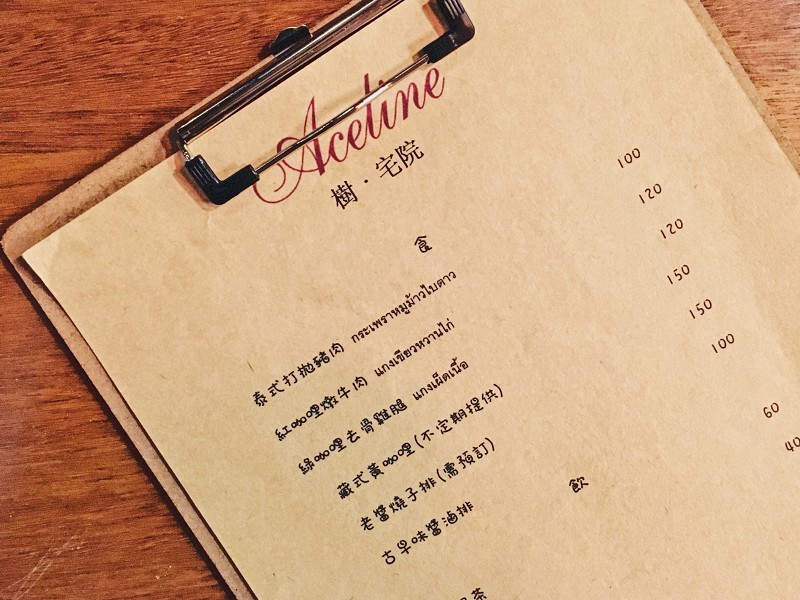 Aceline
樹·宅院
食
泰式打拋豬肉 กระเพราหมูม้าวไบดาว 100
紅咖哩燉牛肉 แกงเขียวหวานไก่ 120
綠咖哩去骨雞腿 แกงเผ็ดเนื้อ 120
藏式黃咖哩(不定期提供) 150
老醬燒子排(需預訂) 150
古早味醬滷排 100
飲
茶 60
40